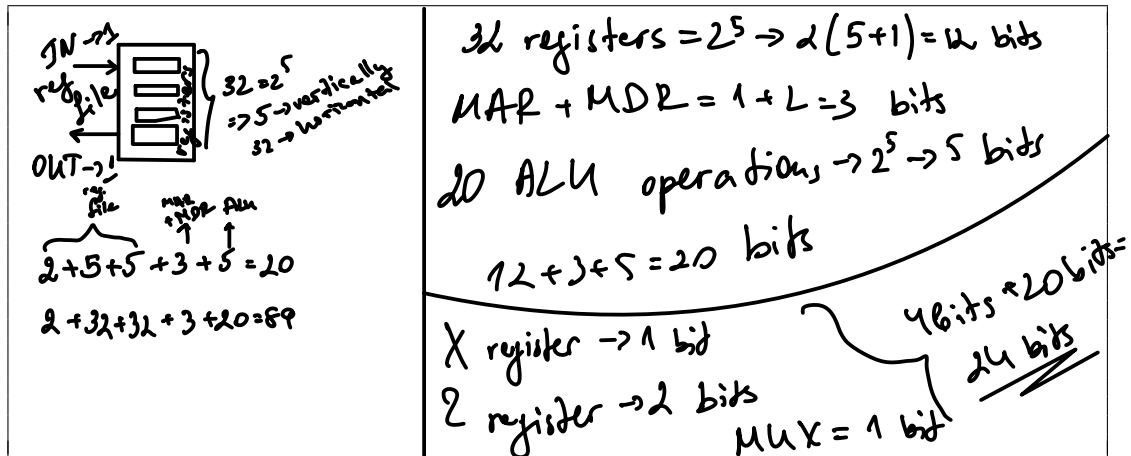 IN → 1
reg file
OUT → 1
registers
32 = 2^5
=> 5 → vertically
32 → horizontal
reg. file
MAR + MDR
ALU
2+5+5+3+5=20
2+32+32+3+20=89
32 registers = 2^5 → 2(5+1)=12 bits
MAR + MDR = 1 + 2 = 3 bits
20 ALU operations → 2^5 → 5 bits
12+3+5=20 bits
X register → 1 bit
Z register → 2 bits
MUX = 1 bit
4bits + 20bits =
24 bits